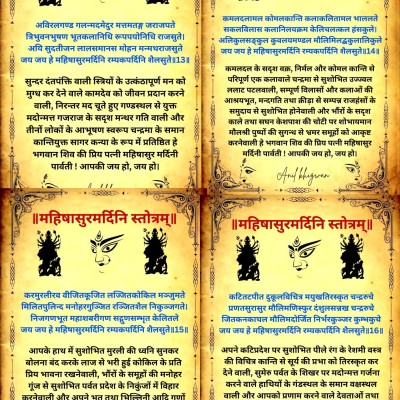 अविरलगण्ड गलन्मदमेदुर मत्तमतङ्ग जराजपते
त्रिभुवनभुषण भूतकलानिधि रूपपयोनिधि राजसुते।
अयि सुदतीजन लालसमानस मोहन मन्मथराजसुते
जय जय हे महिषासुरमर्दिनि रम्यकपर्दिनि शैलसुते॥13॥
सुन्दर दंतपंक्ति वाली स्त्रियों के उत्कंठापूर्ण मन को
मुग्ध कर देने वाले कामदेव को जीवन प्रदान करने
वाली, निरन्तर मद चूते हुए गण्डस्थल से युक्त
मदोन्मत्त गजराज के सदृश मन्थर गति वाली और
तीनों लोकों के आभूषण स्वरूप चन्द्रमा के समान
कान्तियुक्त सागर कन्या के रूप में प्रतिष्ठित हे
भगवान शिव की प्रिय पत्नी महिषासुर मर्दिनी
पार्वती ! आपकी जय हो, जय हो।
कमलदलामल कोमलकान्ति कलाकलितामल भाललते
सकलविलास कलानिलयक्रम केलिचलत्कल हंसकुले।
अलिकुलसङ्कुल कुवलयमण्डल मौलिमिलद्बकुलालिकुले
जय जय हे महिषासुरमर्दिनि रम्यकपर्दिनि शैलसुते॥14॥
कमलदल के सदृश वक्र, निर्मल और कोमल कान्ति से
परिपूर्ण एक कलावाले चन्द्रमा से सुशोभित उज्ज्वल
ललाट पटलवाली, सम्पूर्ण विलासों और कलाओं की
आश्रयभूत, मन्दगति तथा क्रीड़ा से सम्पन्न राजहंसों के
समुदाय से सुशोभित होनेवाली और भौंरों के सदृश
काले तथा सघन केशपाश की चोटी पर शोभायमान
मौलश्री पुष्पों की सुगन्ध से भ्रमर समूहों को आकृष्ट
करनेवाली हे भगवान शिव की प्रिय पत्नी महिषासुर
मर्दिनी पार्वती ! आपकी जय हो, जय हो।
Anil bhigwan
॥महिषासुरमर्दिनि स्तोत्रम्॥
करमुरलीरव वीजितकूजित लज्जितकोकिल मञ्जुमते
मिलितपुलिन्द मनोहरगुञ्जित रञ्जितशैल निकुञ्जगते।
निजगणभूत महाशबरीगण सद्गुणसम्भृत केलितले
जय जय हे महिषासुरमर्दिनि रम्यकपर्दिनि शैलसुते॥15॥
आपके हाथ में सुशोभित मुरली की ध्वनि सुनकर
बोलना बंद करके लाज से भरी हुई कोकिल के प्रति
प्रिय भावना रखनेवाली, भौंरों के समूहों की मनोहर
गूंज से सुशोभित पर्वत प्रदेश के निकुंजों में विहार
करनेवाली और अपने भूत तथा भिल्लिनी आदि गणों
॥महिषासुरमर्दिनि स्तोत्रम्॥
कटितटपीत दुकूलविचित्र मयुखतिरस्कृत चन्द्ररुचे
प्रणतसुरासुर मौलिमणिस्फुर दंशुलसन्नख चन्द्ररुचे
जितकनकाचल मौलिमदोर्जित निर्भरकुञ्जर कुम्भकुचे
जय जय हे महिषासुरमर्दिनि रम्यकपर्दिनि शैलसुते॥16॥
अपने कटिप्रदेश पर सुशोभित पीले रंग के रेशमी वस्त्र
की विचित्र कान्ति से सूर्य की प्रभा को तिरस्कृत कर
देने वाली, सुमेरु पर्वत के शिखर पर मदोन्मत्त गर्जना
करने वाले हाथियों के गंडस्थल के समान वक्षस्थल
वाली और आपको प्रणाम करने वाले देवताओं तथा